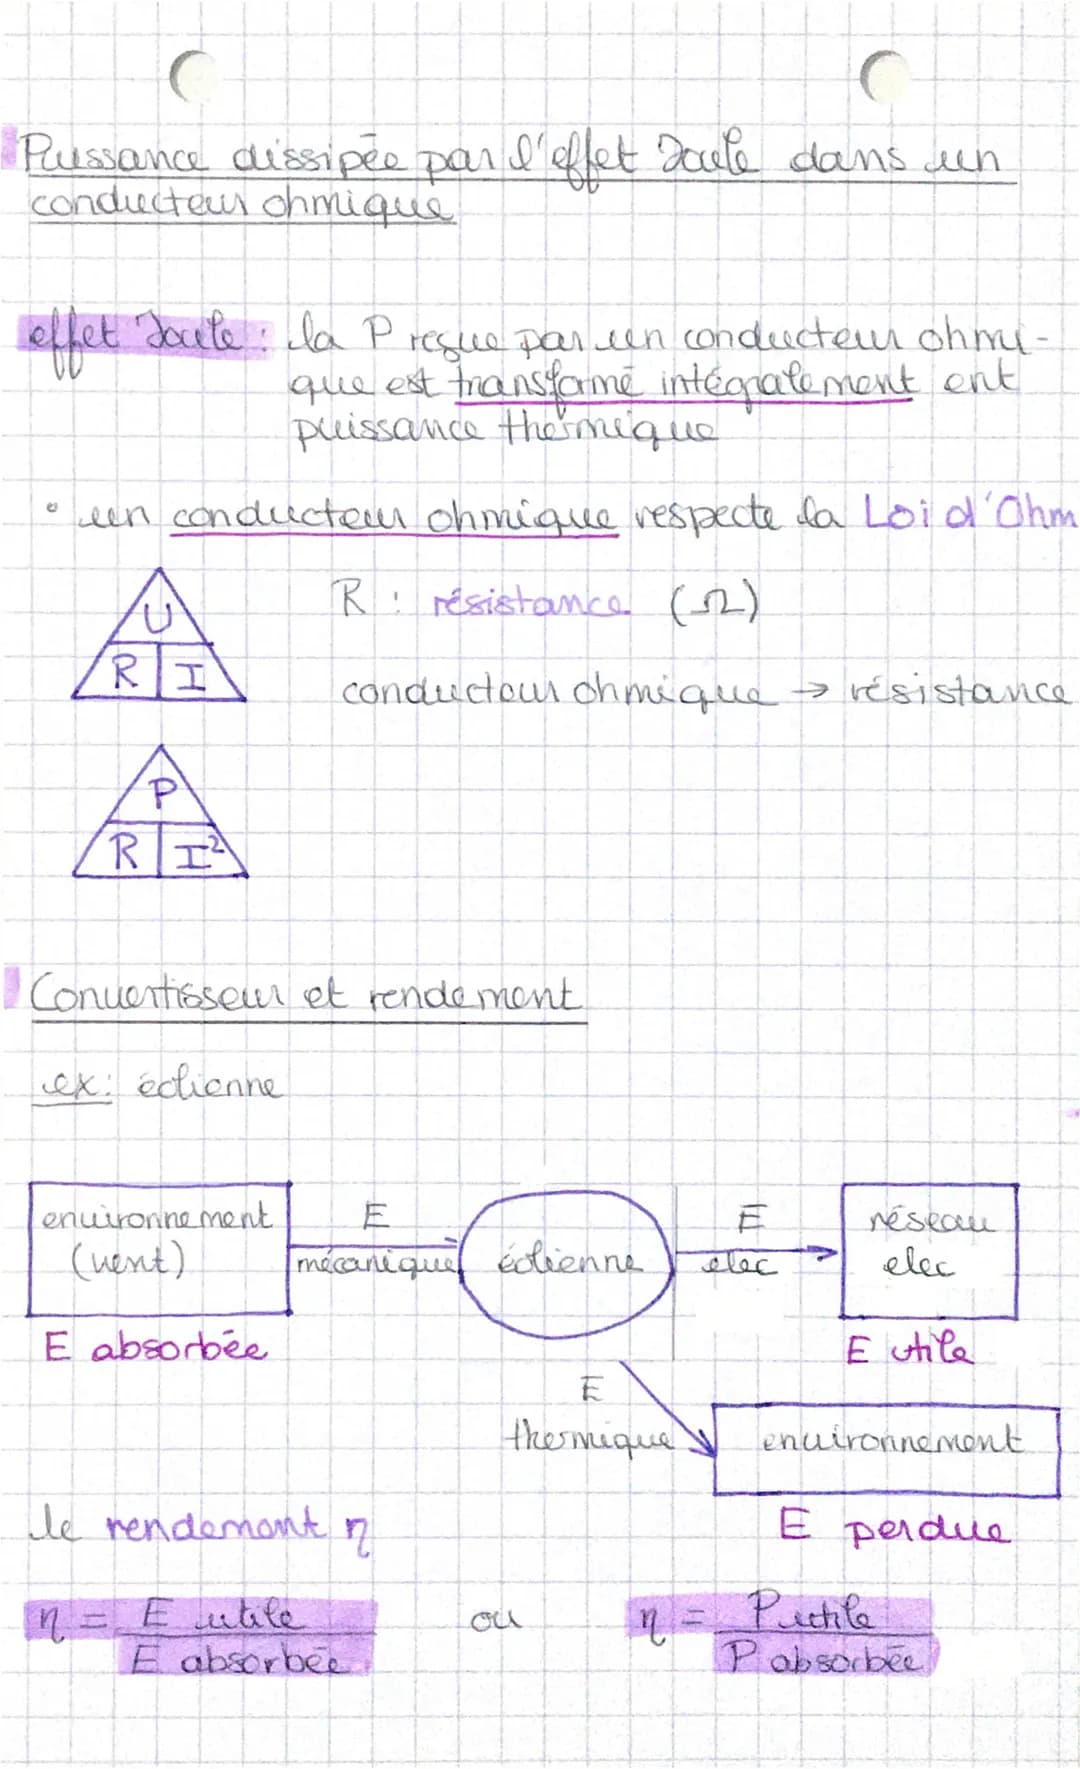 Puissance dissipée par l'effet Joule dans un
conducteur ohmique
effet Joule : la P reçue par un conducteur ohmi-
que est transformé intégralement ent
puissance thermique
• un conducteur ohmique respecte la Loi d'Ohm
U
R I
R : résistance (Ω)
conducteur ohmique → résistance
P
R I²
Convertisseur et rendement
ex: éolienne
environnement
(vent)
E
mécanique
éolienne
E
elec
réseau
elec
E absorbée
E utile
E
thermique
environnement
E perdue
le rendement η
η = E utile
E absorbée
ou
η = P utile
P absorbée